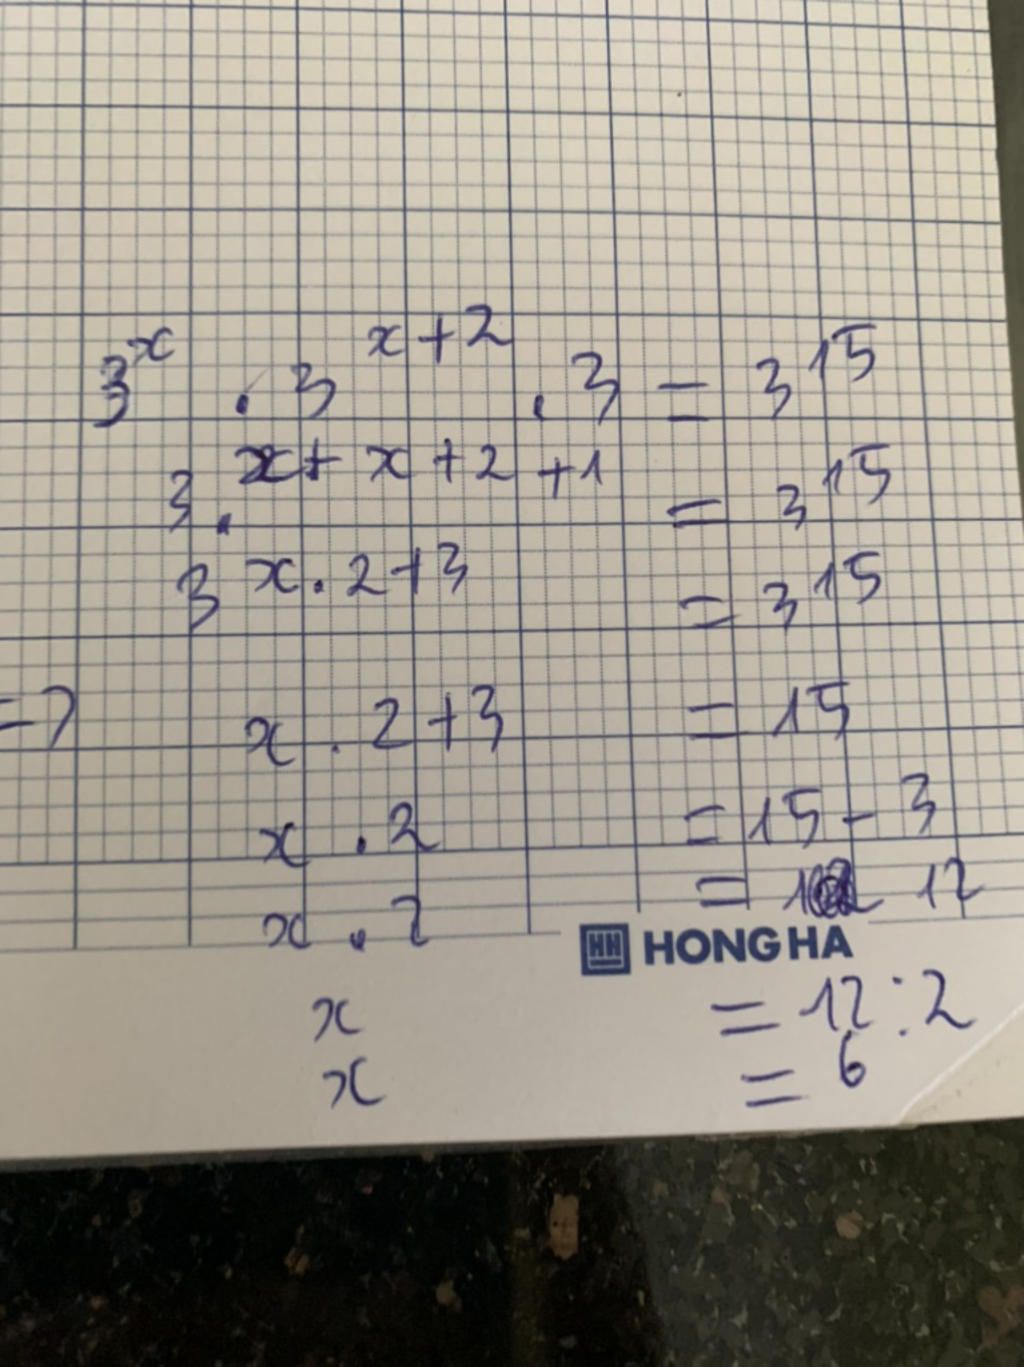 3^x . 3^{x+2} . 3 = 3^{15}
3.^{x+ x+2 +1} = 3^{15}
3^{x.2+3} = 3^{15}
=> x . 2+3 = 15
x . 2 = 15 - 3
x . 2 = 12
HONG HA
x = 12 : 2
x = 6